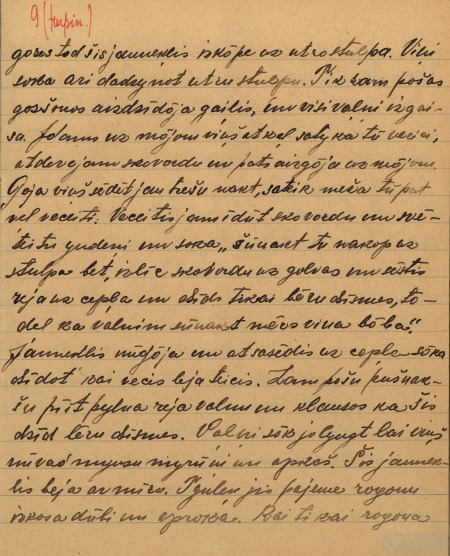 9 (turpin.)
gores tod šis jauneklis izkōpe uz utro stulpa. Viņi
soka ari dadzynot utru stulpu. Tik zam pošas
gosšonos aizdzīdōja gailis, un visi valni izgai-
sa. Īdams uz mōjom viņš atkal satyka tū veceiti,
atdevejam skovordu un pats aizgōja uz mōjom.
Gōja viņš sēdēt jau trešu nakt, satik meža tū pat
vel veceiti. Veceitis jam īdūt skovordu un svē-
teitu yudeni un soka „šūnakt tu nakop uz
stulpa bet, izlic skovordu uz golvas un sēstīs
reja uz cepļa un dzīd tikai bēru dzismes, tō-
del ka valnim šūnakt mērs vina bōba".
Jauneklis nūgōja un atsasēdīs uz cepļa sōka
dzīdōt kai vecis beja teicis. Zam pošu pusnak-
šu pīīt pylna reja valnu un klausos ka šis
dzīd bēru dzismes. Valni sōk jō lyugt lai viņš
nūvad myusu myrūni un apkoš. Šis jaunek-
lis beja ar mīru. Tyuleņ jis pajeme rogonu
izkosa dūbi un aproka. Kai tikai rogona